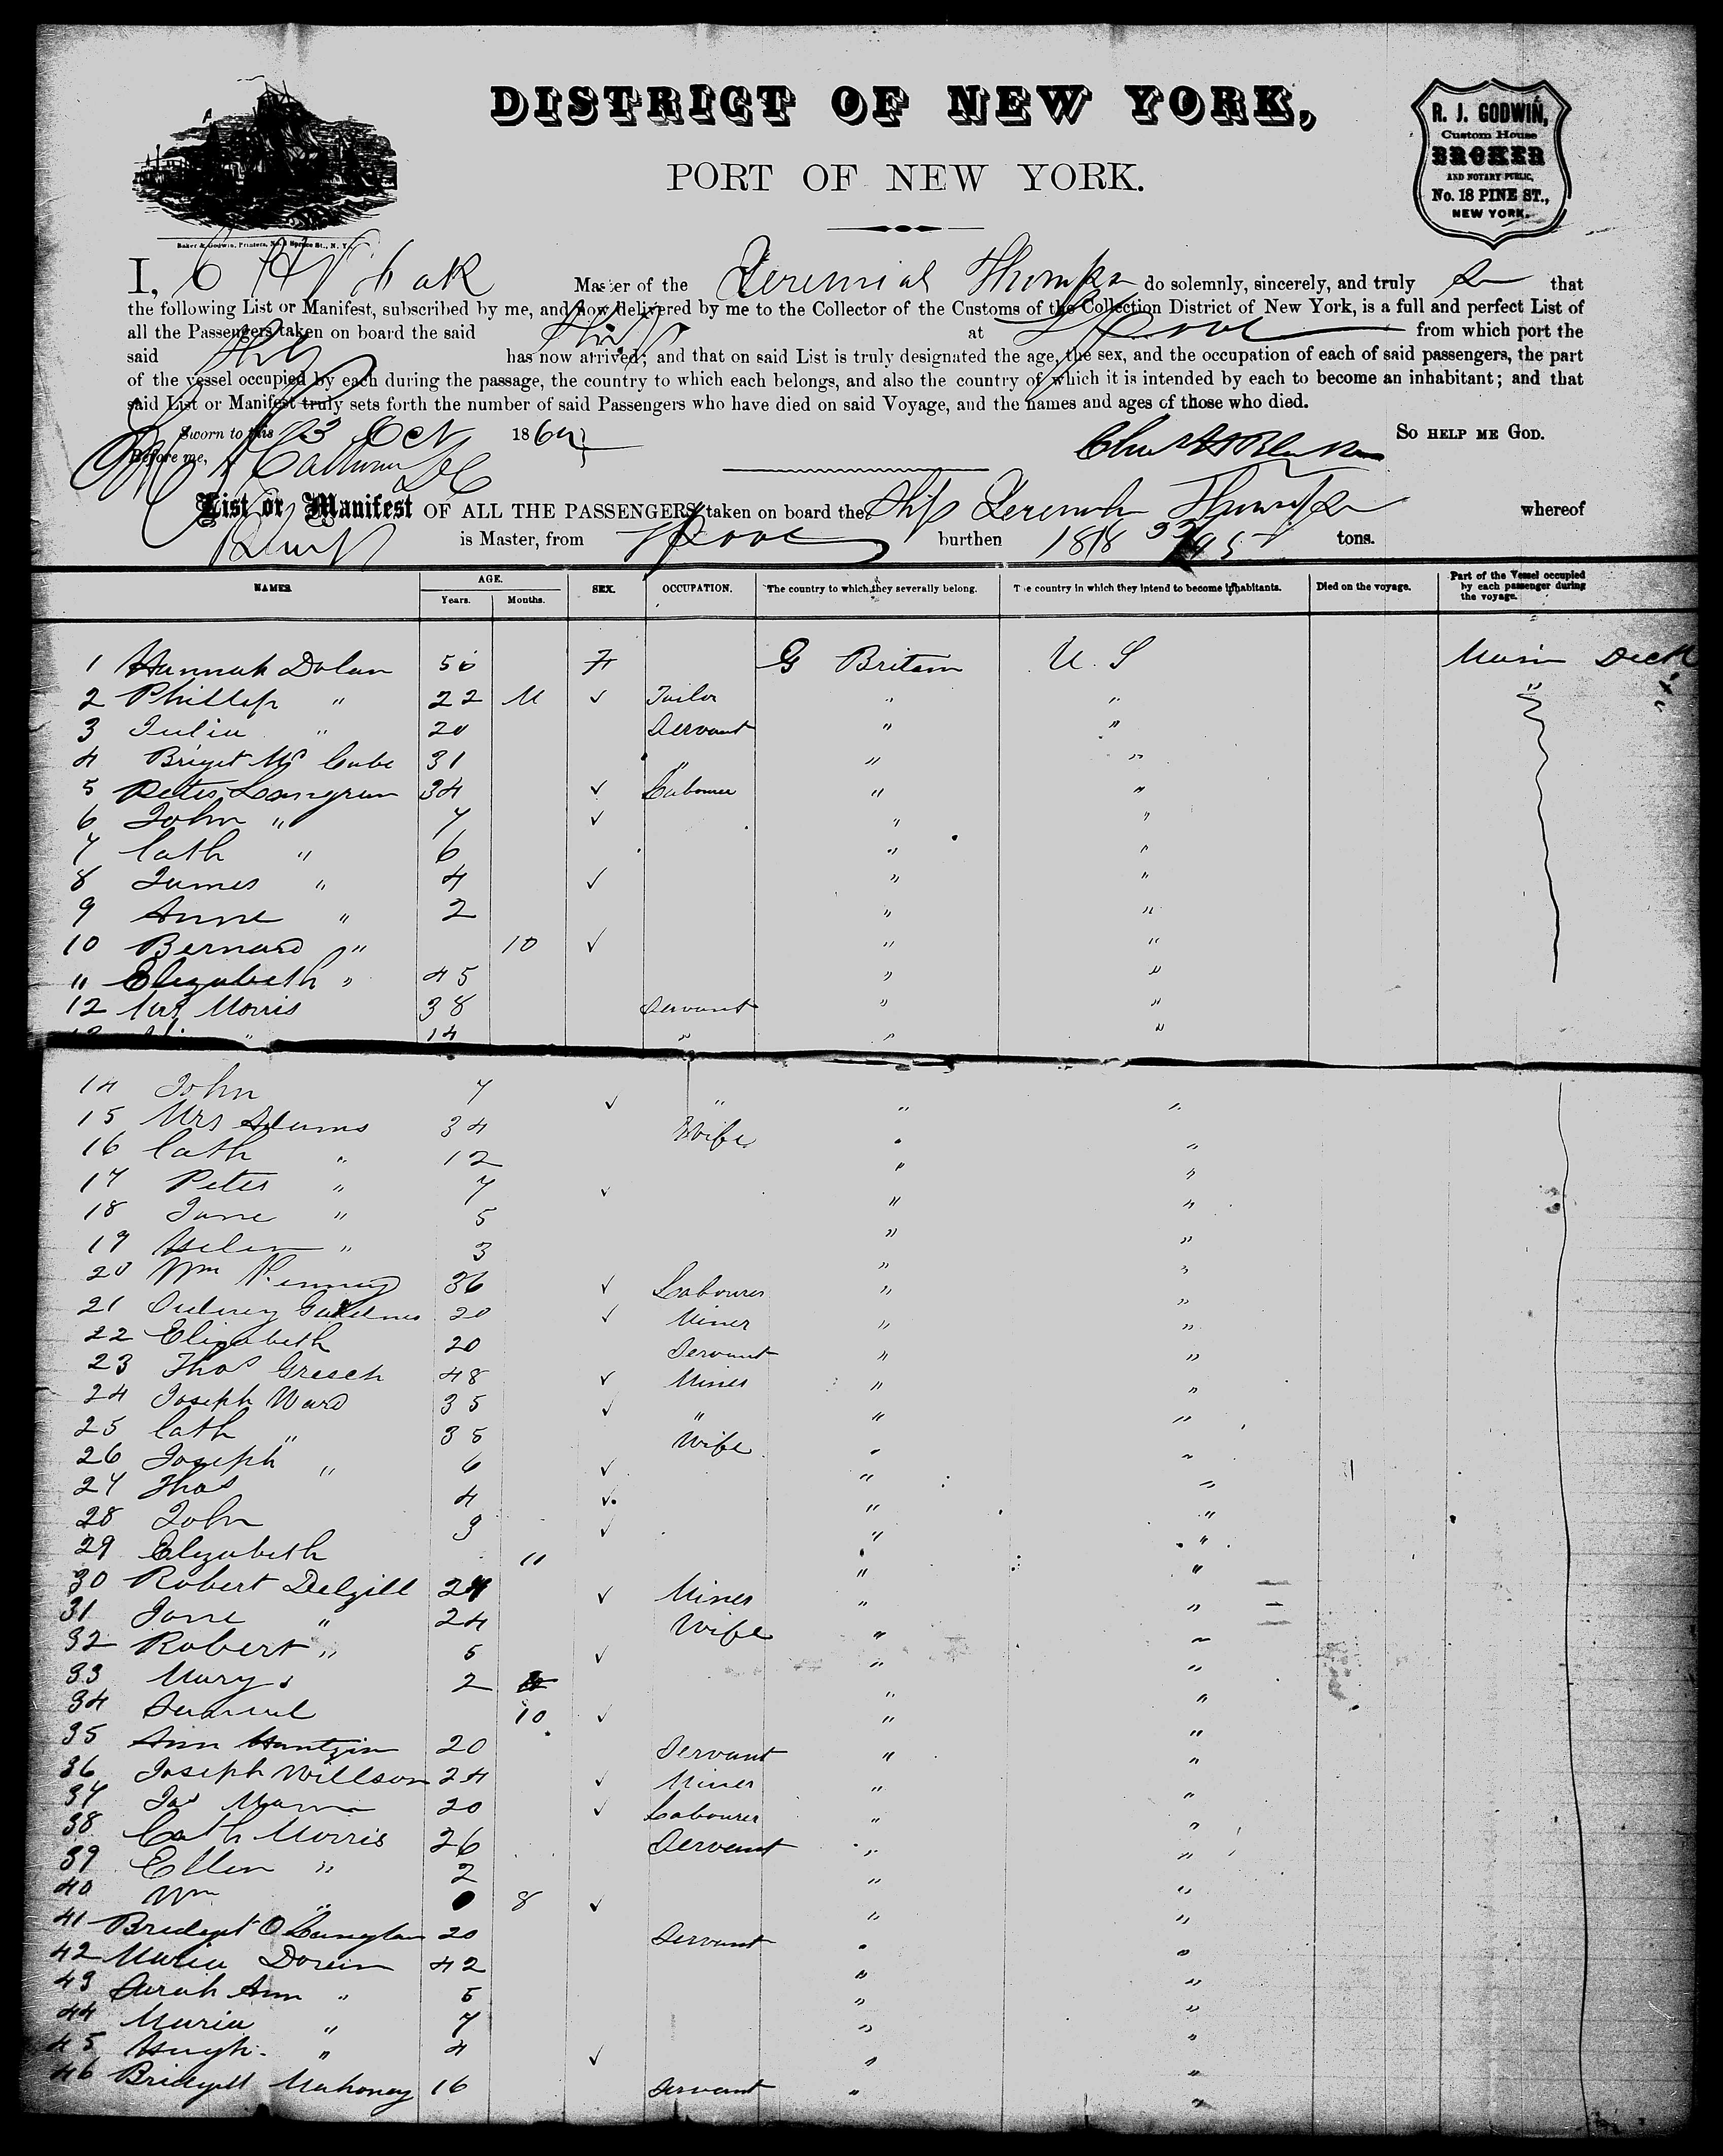 DISTRICT OF NEW YORK,
PORT OF NEW YORK.
R. J. GODWIN,
Custom House
BROKER
AND NOTARY PUBLIC,
No. 18 PINE ST.,
NEW YORK.
Baker & Godwin, Printers, No. 1 Spruce St., N. Y.
I, C H Master of the Jeremiah Thompson do solemnly, sincerely, and truly that
the following List or Manifest, subscribed by me, and now delivered by me to the Collector of the Customs of the Collection District of New York, is a full and perfect List of
all the Passengers taken on board the said Ship at LPool from which port the
said Ship has now arrived; and that on said List is truly designated the age, the sex, and the occupation of each of said passengers, the part
of the vessel occupied by each during the passage, the country to which each belongs, and also the country of which it is intended by each to become an inhabitant; and that
said List or Manifest truly sets forth the number of said Passengers who have died on said Voyage, and the names and ages of those who died.
Sworn to this 13 Oct 186 SO HELP ME GOD.
Before me, Calhoun
List or Manifest OF ALL THE PASSENGERS taken on board the Ship Jeremiah Thompson whereof
is Master, from LPool burthen 1818 tons.
NAMES AGE. Years. Months. SEX. OCCUPATION. The country to which they severally belong. The country in which they intend to become inhabitants. Died on the voyage. Part of the Vessel occupied by each passenger during the voyage.
1 Hannah Dolan 50 F G Britain U. S Main Deck
2 Phillip " 22 M ✓ Tailor " " "
3 Julia " 20 Servant " "
4 Briget Mc Cabe 31 " " "
5 Peter 34 ✓ Labourer " "
6 John " 7 ✓ " "
7 Cath " 6 " "
8 James " 4 ✓ " "
9 Anne " 2 " "
10 Bernard " 10 ✓ " "
11 Elizabeth " 45 " "
12 Mrs Morris 38 Servant " "
13 " 14 " " "
14 John 7 ✓ " " "
15 Mrs Adams 34 Wife " "
16 Cath " 12 " "
17 Peter " 7 ✓ " "
18 Jane " 5 " "
19 Helen " 3 " "
20 Wm Kenney 36 ✓ Labourer " "
21 20 ✓ Miner " "
22 Elizabeth 20 Servant " "
23 Thos Greech 48 ✓ Miner " "
24 Joseph Ward 35 ✓ " " "
25 Cath " 35 Wife " "
26 Joseph " 6 ✓ " "
27 Thos 4 ✓ " "
28 John 3 ✓ " "
29 Elizabeth 11 " "
30 Robert Delgill 24 ✓ Miner " "
31 Jane " 24 Wife " "
32 Robert " 5 ✓ " "
33 Mary " 2 " "
34 Samuel 10 ✓ " "
35 Ann Hantzin 20 Servant " "
36 Joseph Willson 24 ✓ Miner " "
37 Jas Mann 20 ✓ Labourer " "
38 Cath Morris 26 Servant " "
39 Ellen " 2 " "
40 Wm " 0 8 ✓ " "
41 Bridget 20 Servant " "
42 Maria Doran 42 " "
43 Sarah Ann " 5 " "
44 Maria " 7 " "
45 Hugh " 4 ✓ " "
46 Bridgett Mahoney 16 Servant " "